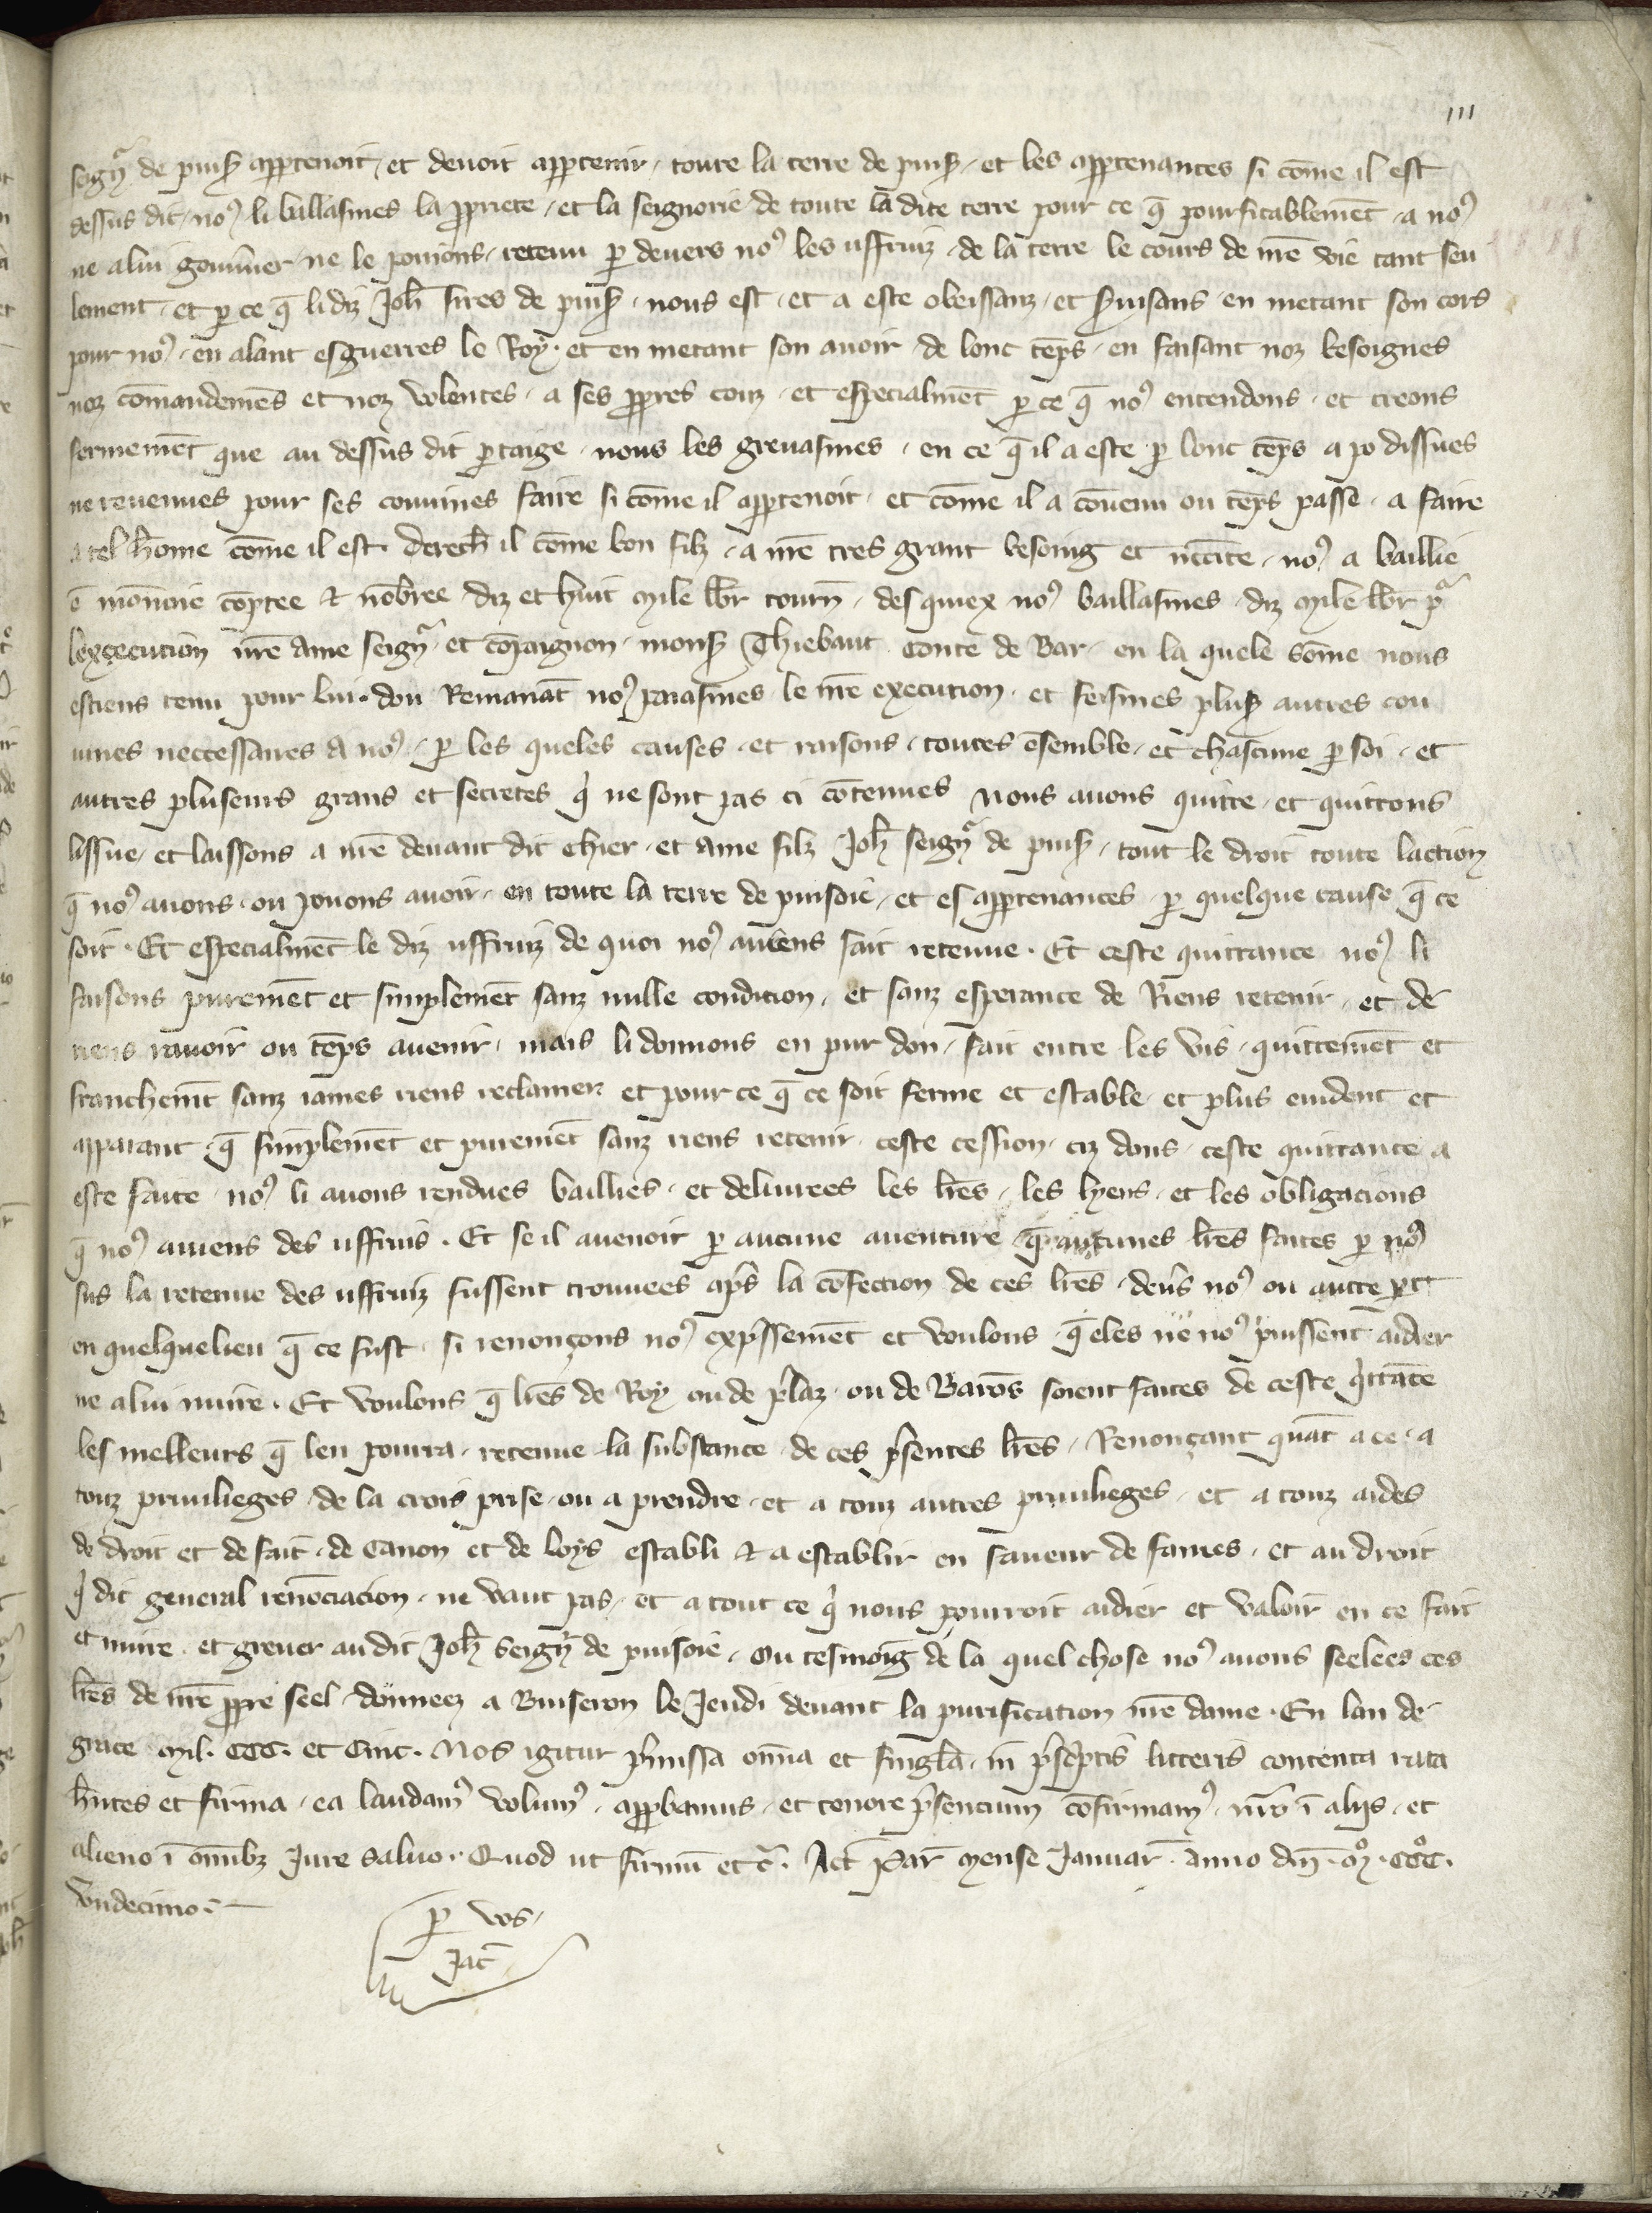 III
seigr̃ de puis̃ appartenoit, et devoit appartenir, toute la terre de puis̃, et les appartenances si cōme il est
dessus dit, noꝰ li baillasmes la ꝓpriete, et la seignorie de toute la dite terre pour ce q̄ pourfitablemēt a noꝰ
ne a lui gouv̄ner ne le poiions, retenu ꝑ devers noꝰ les usfruiz de la terre le cours de nr̄e vie tant seu
lement, et ꝑ ce q̄ li diz Joh̄ sires de puis̃, nous est, et a este obeissanz, et s̄visans, en metant son cors
pour noꝰ, en alant es guerres le Roy, et en metant son avoir, de lonc tēps, en faisant noz besoignes
noz cōmandemēs et noz volentes, a ses ꝓpres couz, et especialmēt ꝑ ce q̄ noꝰ entendons, et creons
fermemēt que au dessus dit ꝑtaige, nous les grevasmes, en ce q̄ il a este ꝑ lonc tēps a po dissues
ne revenues pour ses couvines faire si cōme il apꝑtenoit, et cōme il a cōvenu ou tēps passe, a faire
a tel hōme cōme il est. derech̄ il cōme bon filz, a nr̄e tres grant besoing et nēcc̄ite, noꝰ a baillie
ē monnoie cōptee & nōbree diz et huit mile lb̄r tourn̄, des quiex noꝰ baillasmes, diz mile lb̄r pr̃
lexcecution nr̄e ame seigr̃ et cōpaignon, mons̃ Thiebaut conte de Bar, en la quele sōme nous
estiens tenu pour lui. dou Remanāt noꝰ paiasmes le nr̄e execution, et feismes plus̃ autres cou
vines neccessaires a noꝰ, ꝑ les queles causes, et raisons, toutes ēsemble, et chascune ꝑ soi, et
autres pluseurs grans et secretes q̇ ne sont pas ci cōtenues Nous avons quitte, et quittons
lissue, et laissons a nr̄e devant dit chier, et ame filz Joh̄ seigr̃ de puis̃, tout le droit toute laction
q̄ noꝰ avons, ou povons avoir, en toute la terre de puisoie, et es apꝑtenances, ꝑ quelque cause q̄ ce
soit. Et especialmēt le diz usfruiz de quoi noꝰ aviens fait retenue. Et ceste quittance noꝰ li
faisons puremēt et simplemēt sanz nulle condition, et sanz esperance de Riens retenir, et de
riens ravoir ou tēps avenir, mais li donnons en pur don, fait entre les vis, quittemēt et
franchemēt sanz james riens reclamer et pour ce q̄ ce soit ferme et estable, et plus evident et
apparant, q̄ simplemēt et puremēt sanz riens retenir, ceste cession, ciz dons, ceste quittance a
este faite, noꝰ li avons rendues baillies, et delivrees les lr̄es, les lyens, et les obligacions
q̄ noꝰ aviens des usfruis. Et se il avenoit ꝑ aucune aventure q̄ aucunes lr̄es faites ꝑ noꝰ
sus la retenue des usfruiz fussent trouvees ap̄s la cōfection de ces lr̄es, dev̄s noꝰ ou autre ꝑt
en quelque lieu q̄ ce fust, si renonçons noꝰ exp̄ssemēt et voulons q̄ eles ne noꝰ puissent aidier
ne a lui nuire. Et voulons q̄ lr̄es de Roy ou de p̄laz, ou de Barōs soient faites de ceste q̇ttāce
les melleurs q̄ len pourra, retenue la substance, de ces p̄sentes lr̄es, Renonçant quāt a ce, a
touz privilieges, de la crois prise, ou a prendre, et a touz autres privilieges, et a touz aides
de droit et de fait, de Canon et de loys establi & a establir en faveur de fames, et au droit
q̇ dit general renōciacion, ne vaut pas, et a tout ce q̇ nous pourroit aidier et valoir en ce fait
et nuire, et grever au dit Joh̄ Seigr̃ de puisoie, Ou tesmoig̃ de la quel chose noꝰ avons seelees ces
lr̄es de nr̄e ꝓpre seel, donneez a Buiseron le Jeudi devant la purification nr̄e dame. En lan de
grace mil. CCC. et Cinc. Nos igitur p̄missa om̄ia et singl̄a, in p̄scptis̄ litteris contenta rata
hn̄tes et firma, ea laudamꝰ volumꝰ, apꝓbamus, et tenore p̄sencium cōfirmamꝰ, nr̄o ī aliis, et
alieno ī om̄ibꝫ Jure salvo. Quod ut firmū etc̃. Act̄ Par̄ mense Januar̄. anno dn̄i. mº. CCCº.
Undecimo.
ꝑ vos,
Jac̄